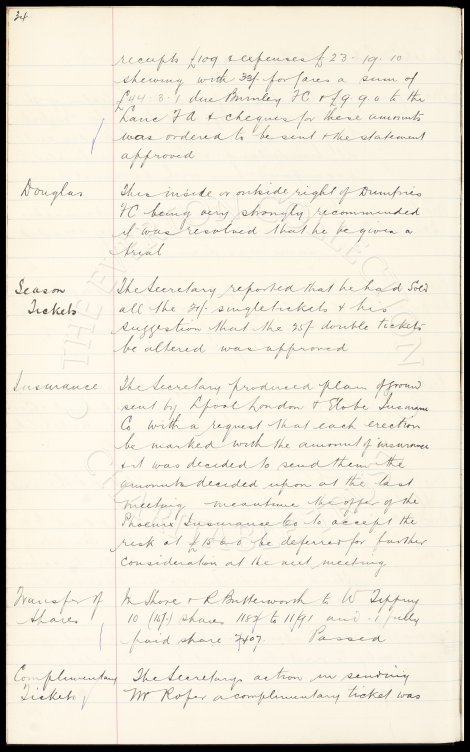 34
receipts £109 & expenses £23-19-10
shewing with 33/- for fares a sum of
£44-3-1 due Burnley FC & £9-9-0 to the
Lanc FA & cheques for these amounts
was ordered to be sent & the statement
approved
Douglas
This inside or outside right of Dumfries
FC being very strongly recommended
it was resolved that he be given a
trial
Season
Tickets
The Secretary reported that he had sold
all the 21/- single tickets & his
suggestion that the 25/- double tickets
be altered was approved
Insurance
The Secretary produced plan of ground
sent by Lpool London & Globe Insurance
Co with a request that each erection
be marked with the amount of insurance
& it was decided to send them the
amounts decided upon at the last
meeting meantime the offer of the
Phoenix Insurance Co to accept the
risk at be deferred for further
consideration at the next meeting
Transfer of
Shares
M Shore & R Butterworth to W Tipping
10 (10/-) shares 1182 to 1191 and 1 fully
paid share 407 Passed
Complimentary
Tickets
The Secretarys action in sending
Mr Roper a complimentary ticket was
THE EVERTON COLLECTION